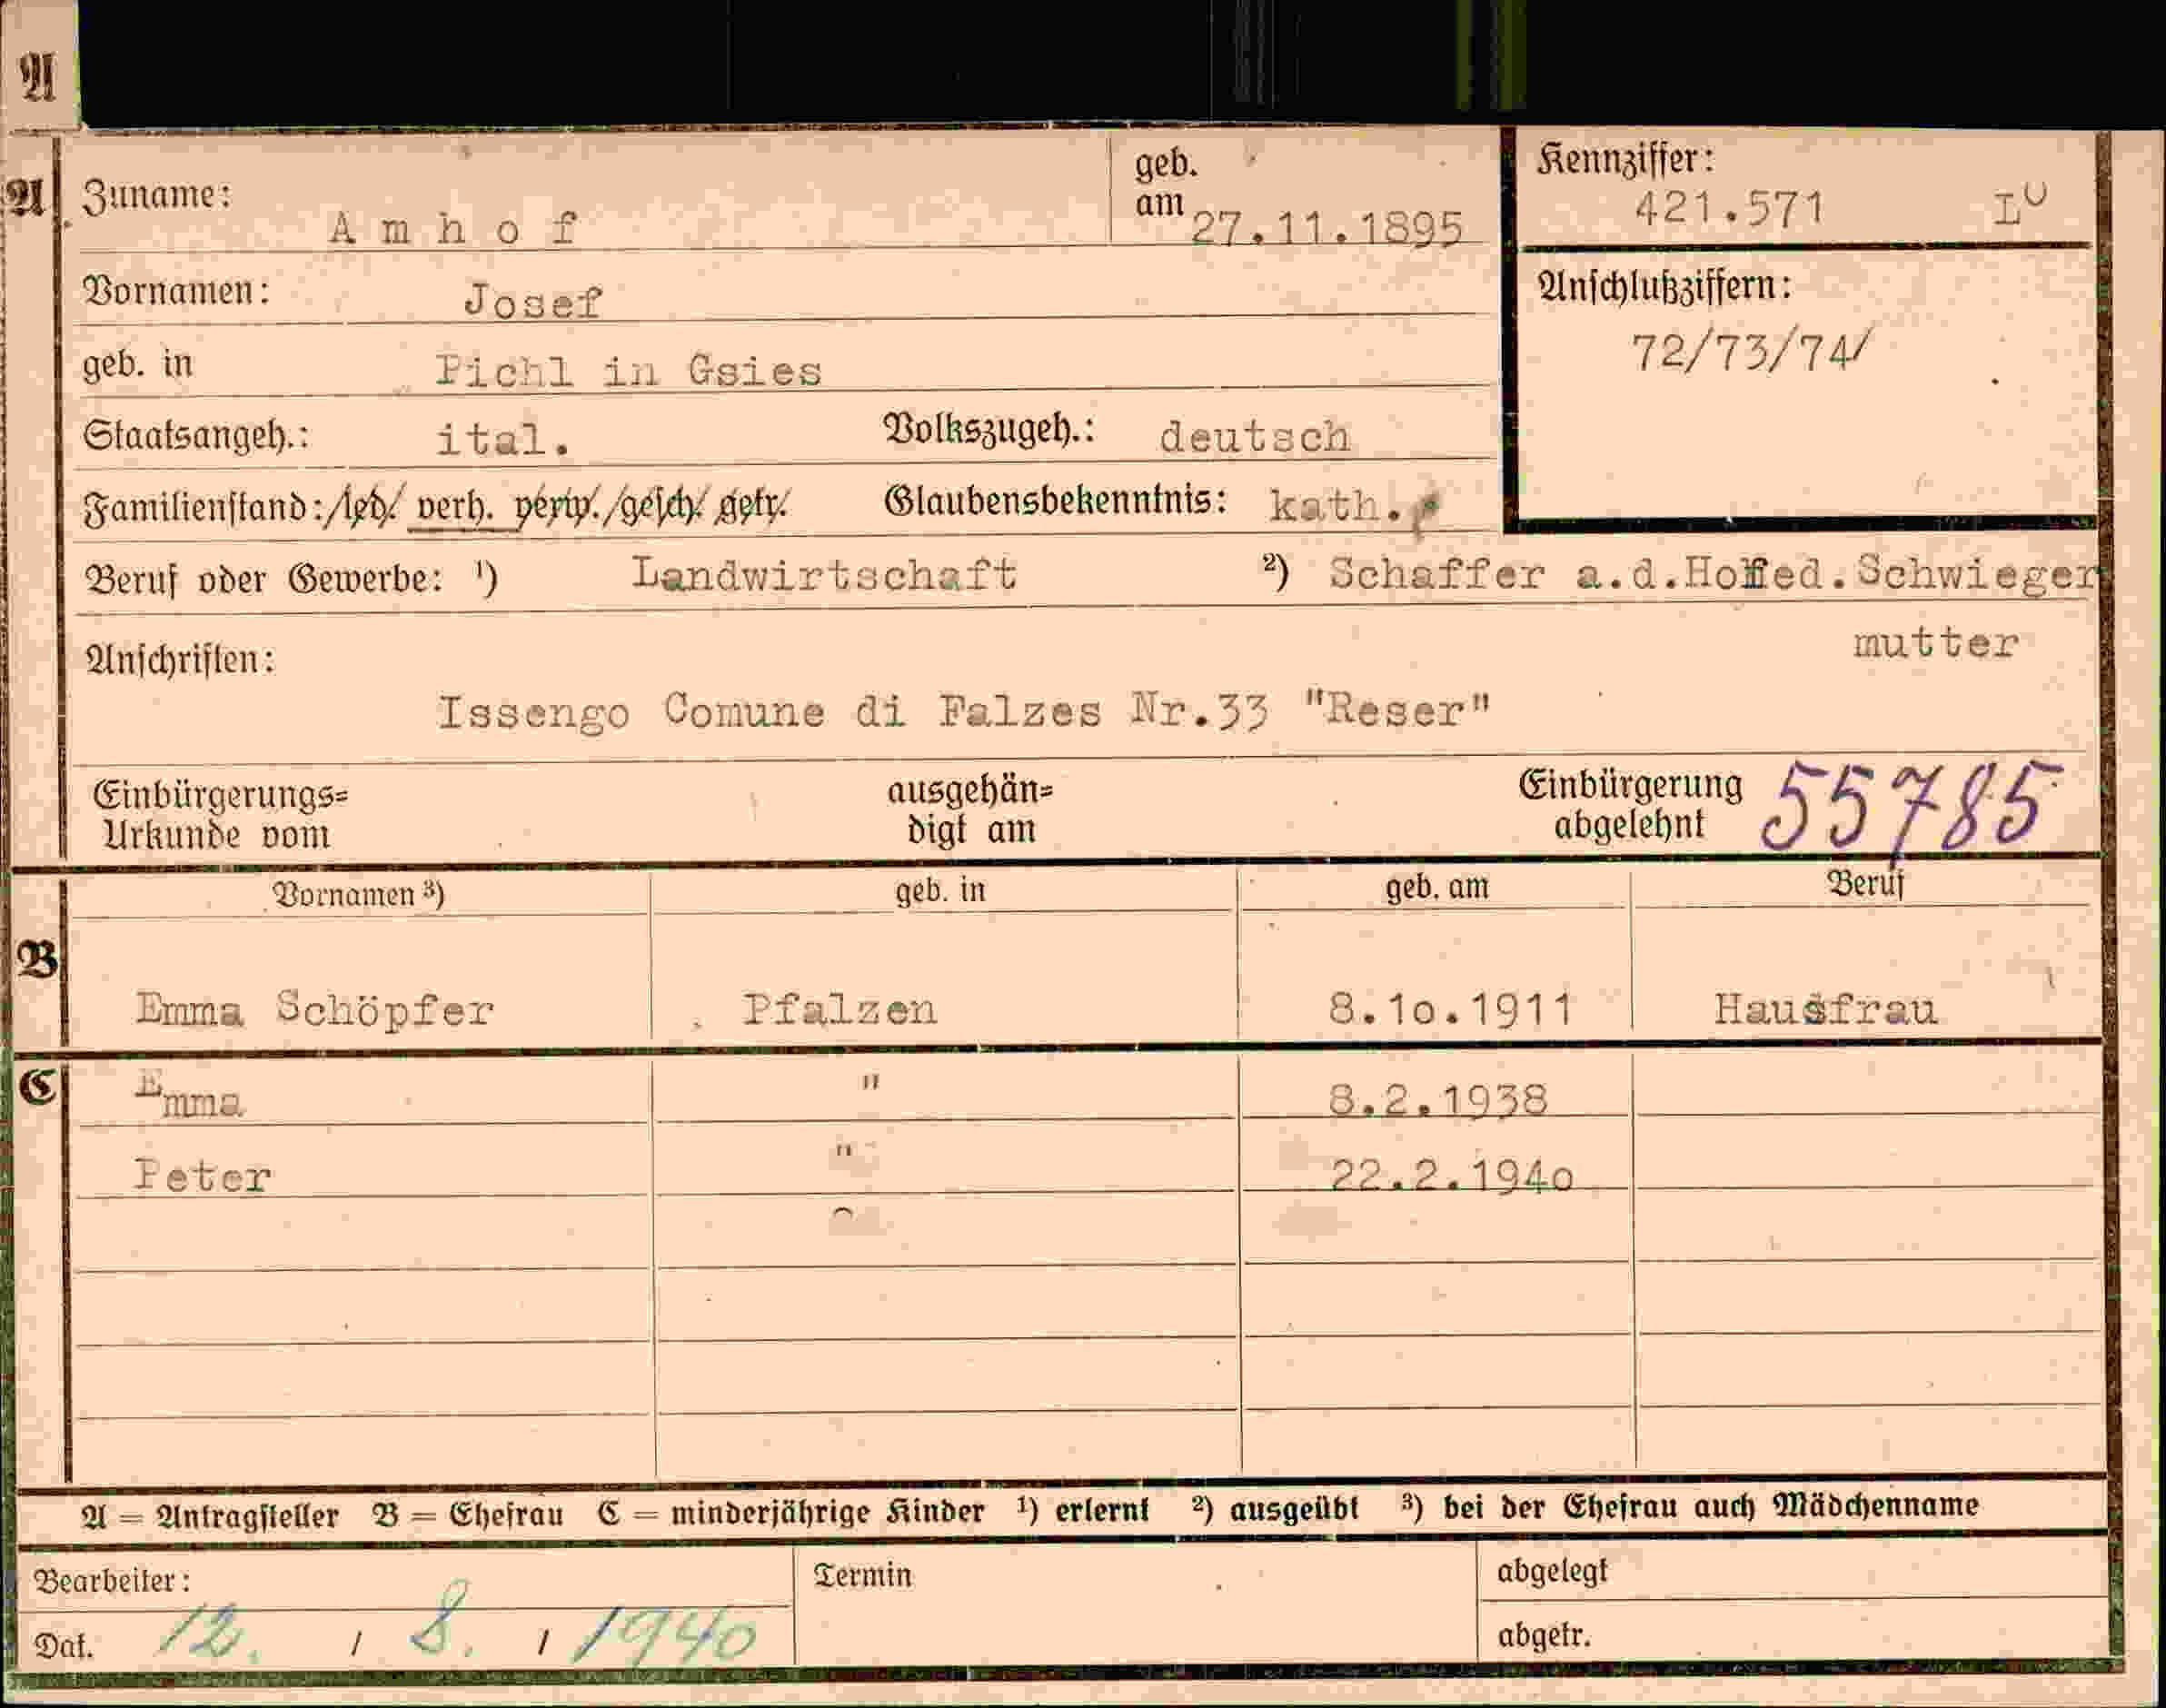 A
A Zuname: Amhof geb. am 27.11.1895 Kennziffer: 421.571 LU
Vornamen: Josef Anschlußziffern: 72/73/74/
geb. in Pichl in Gsies
Staatsangeh.: ital. Volkszugeh.: deutsch
Familienstand: led. verh. verw. gesch. getr. Glaubensbekenntnis: kath.
Beruf oder Gewerbe: ¹) Landwirtschaft ²) Schaffer a.d.Hofed.Schwieger
mutter
Anschriften:
Issengo Comune di Falzes Nr.33 "Reser"
Einbürgerungs= ausgehän= Einbürgerung 55785
Urkunde vom digt am abgelehnt
Vornamen ³) geb. in geb. am Beruf
B Emma Schöpfer Pfalzen 8.10.1911 Hausfrau
C Emma " 8.2.1938
Peter " 22.2.1940
A = Antragsteller B = Ehefrau C = minderjährige Kinder ¹) erlernt ²) ausgeübt ³) bei der Ehefrau auch Mädchenname
Bearbeiter: Termin abgelegt
Dat. 12. / 8. / 1940 abgetr.